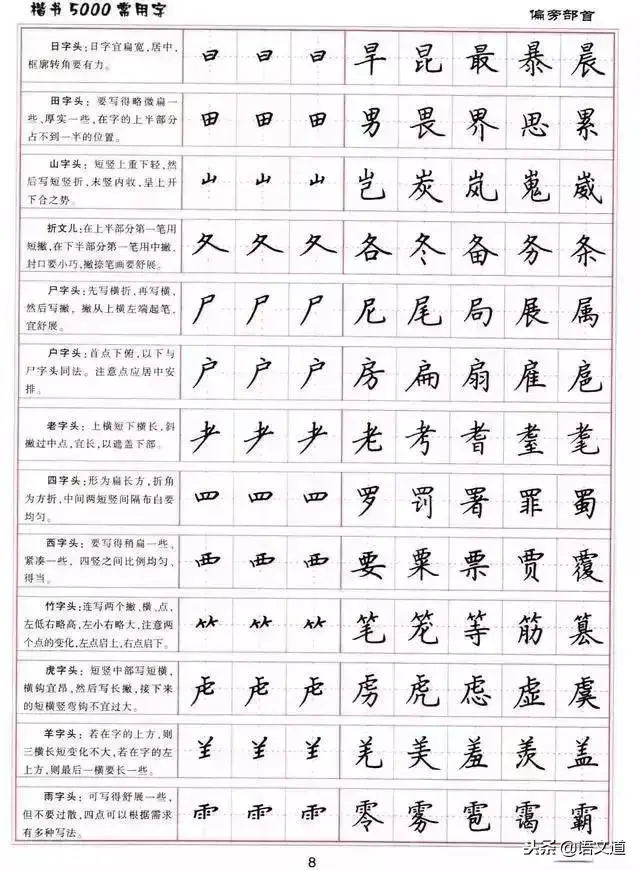 楷书5000常用字
偏旁部首
日字头：日字宜扁宽，居中，
框廓转角要有力。
日 日 日 旱 昆 最 暴 晨
田字头：要写得略微扁一
些，厚实一些，在字的上半部分
占不到一半的位置。
田 田 田 男 畏 界 思 累
山字头：短竖上重下轻，然
后写短竖折，末竖内收，呈上开
下合之势。
山 山 山 岂 炭 岚 嵬 崴
折文儿：在上半部分第一笔用
短撇，在下半部分第一笔用中撇，
封口要小巧，撇捺笔画要舒展。
夂 夂 夂 各 冬 备 务 条
尸字头：先写横折，再写横，
然后写撇，撇从上横左端起笔，
宜舒展。
尸 尸 尸 尼 尾 局 展 属
户字头：首点下俯，以下与
尸字头同法。注意点应居中安
排。
户 户 户 房 扁 扇 雇 扈
老字头：上横短下横长，斜
撇过中点，宜长，以遮盖下部。
耂 耂 耂 老 考 耆 耋 耄
四字头：形为扁长方，折角
为方折，中间两短竖间隔布白要
均匀。
罒 罒 罒 罗 罚 署 罪 蜀
西字头：要写得稍扁一些，
紧凑一些，四竖之间比例均匀，
得当。
覀 覀 覀 要 粟 票 贾 覆
竹字头：连写两个撇、横、点，
左低右略高，左小右略大，注意两
个点的变化，左点启上，右点启下。
⺮ ⺮ ⺮ 笔 笼 等 筋 篡
虎字头：短竖中部写短横，
横钩宜昂，然后写长撇，接下来
的短横竖弯钩不宜过大。
虍 虍 虍 虏 虎 虑 虚 虞
羊字头：若在字的上方，则
三横长短变化不大，若在字的左
上方，则最后一横要长一些。
⺷ ⺷ ⺷ 羌 美 羞 羡 盖
雨字头：可写得舒展一些，
但不要过散，四点可以根据需求
有多种写法。
⻗ ⻗ ⻗ 零 雾 雹 霭 霸
8
头条 @语文道